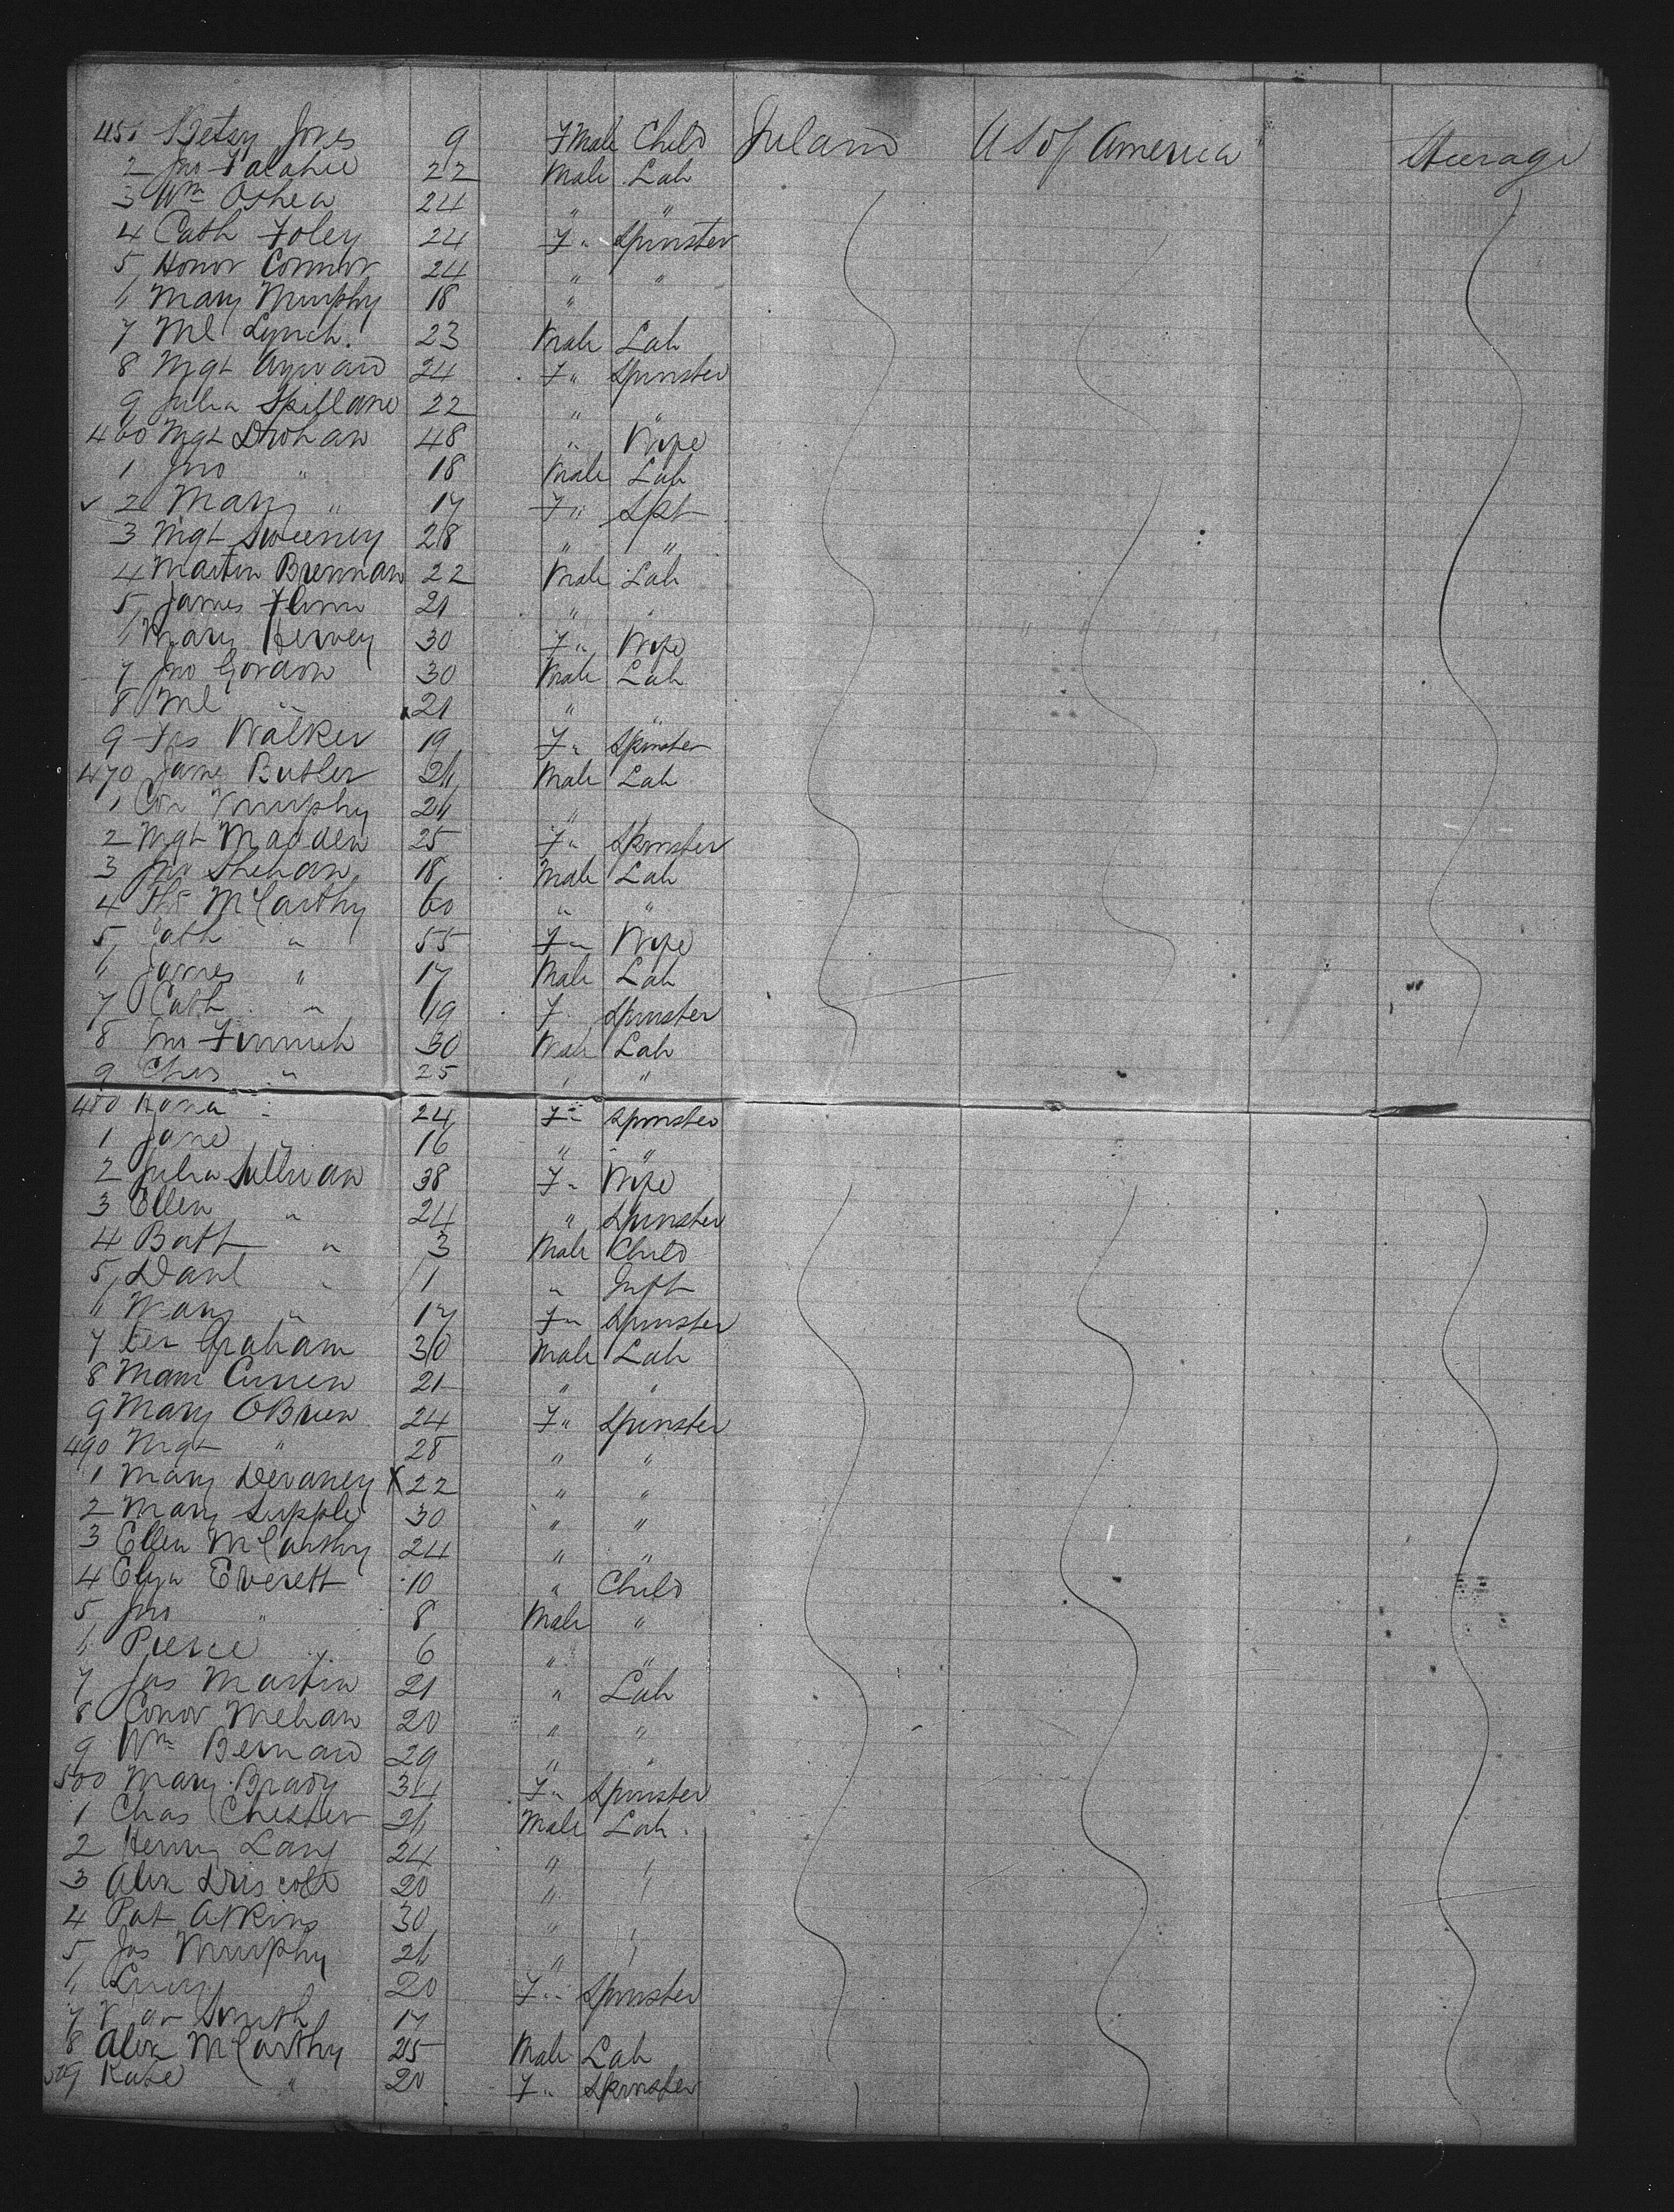 451 Betsy Jones 9 FMale Child Ireland U S of America Steerage
2 Jno Falahie 22 Male Lab
3 Wm Oshea 24 " "
4 Cath Foley 24 F " Spinster
5 Honor Connor 24 " "
6 Mary Murphy 18 "
7 Ml Lynch. 23 Male Lab
8 Mgt Aywars 24 F " Spinster
9 Julia Spillane 22 " "
460 Mgt Drohan 48 " Wife
1 Jno " 18 Male Lab
2 Mary " 17 F " Spt
3 Mgt Sweeney 28 " "
4 Martin Brennan 22 Male Lab
5 James Flinn 21 " "
6 Mary Hervey 30 F " Wife
7 Jno Gordon 30 Male Lab
8 Ml " 21 " "
9 Fas Walker 19 F " Spinster
470 James Butler 26 Male Lab
1 Con Murphy 26 " "
2 Mgt Madden 25 F " Spinster
3 Jno Shehan 18 Male Lab
4 Ths McCarthy 60 " "
5 Cath " 55 F " Wife
6 James " 17 Male Lab
7 Cath " 19 F " Spinster
8 Jno Finnich 30 Male Lab
9 Chas " 25 " "
480 Hona " 24 F " Spinster
1 Jane " 16 " "
2 Julia Sullivan 38 F " Wife
3 Ellen " 24 " Spinster
4 Batt " 3 Male Child
5 Danl " 1 " Inft
6 Mary " 17 F " Spinster
7 Ter Graham 30 Male Lab
8 Mam Curren 21 " "
9 Mary OBrien 24 F " Spinster
490 Mgt " 28 " "
1 Mary Devaney X 22 " "
2 Mary Supple 30 " "
3 Ellen McCarthy 24 " "
4 Elyn Everett 10 " Child
5 Jno " 8 Male "
6 Pierce " 6 " "
7 Jas Martin 21 " Lab
8 Conor Mehan 20 " "
9 Wm Bernard 29 " "
500 Mary Brady 34 F " Spinster
1 Chas Chester 26 Male Lab
2 Henry Lang 24 " "
3 Alex Driscoll 20 " "
4 Pat Atkins 30 " "
5 Jas Murphy 26 " "
6 Lucy " 20 F " Spinster
7 Smith 17
8 Alex McCarthy 25 Male Lab
509 Kate " 20 F " Spinster